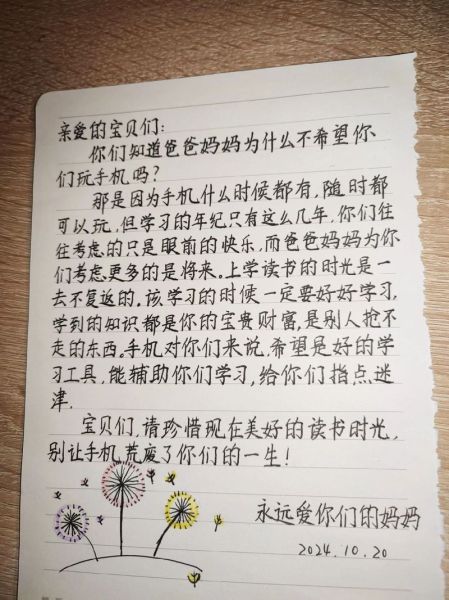 亲爱的宝贝们:
你们知道爸爸妈妈为什么不希望你
们玩手机吗?
那是因为手机什么时候都有,随时都
可以玩,但学习的年纪只有这么几年,你们往
往考虑的只是眼前的快乐,而爸爸妈妈为你
们考虑更多的是将来。上学读书的时光是一
去不复返的,该学习的时候一定要好好学习,
学到的知识都是你的宝贵财富,是别人抢不
走的东西。手机对你们来说,希望是好的学
习工具,能辅助你们学习,给你们指点迷
津.
宝贝们,请珍惜现在美好的读书时光,
别让手机荒废了你们的一生!
永远爱你们的妈妈
2024.10.20